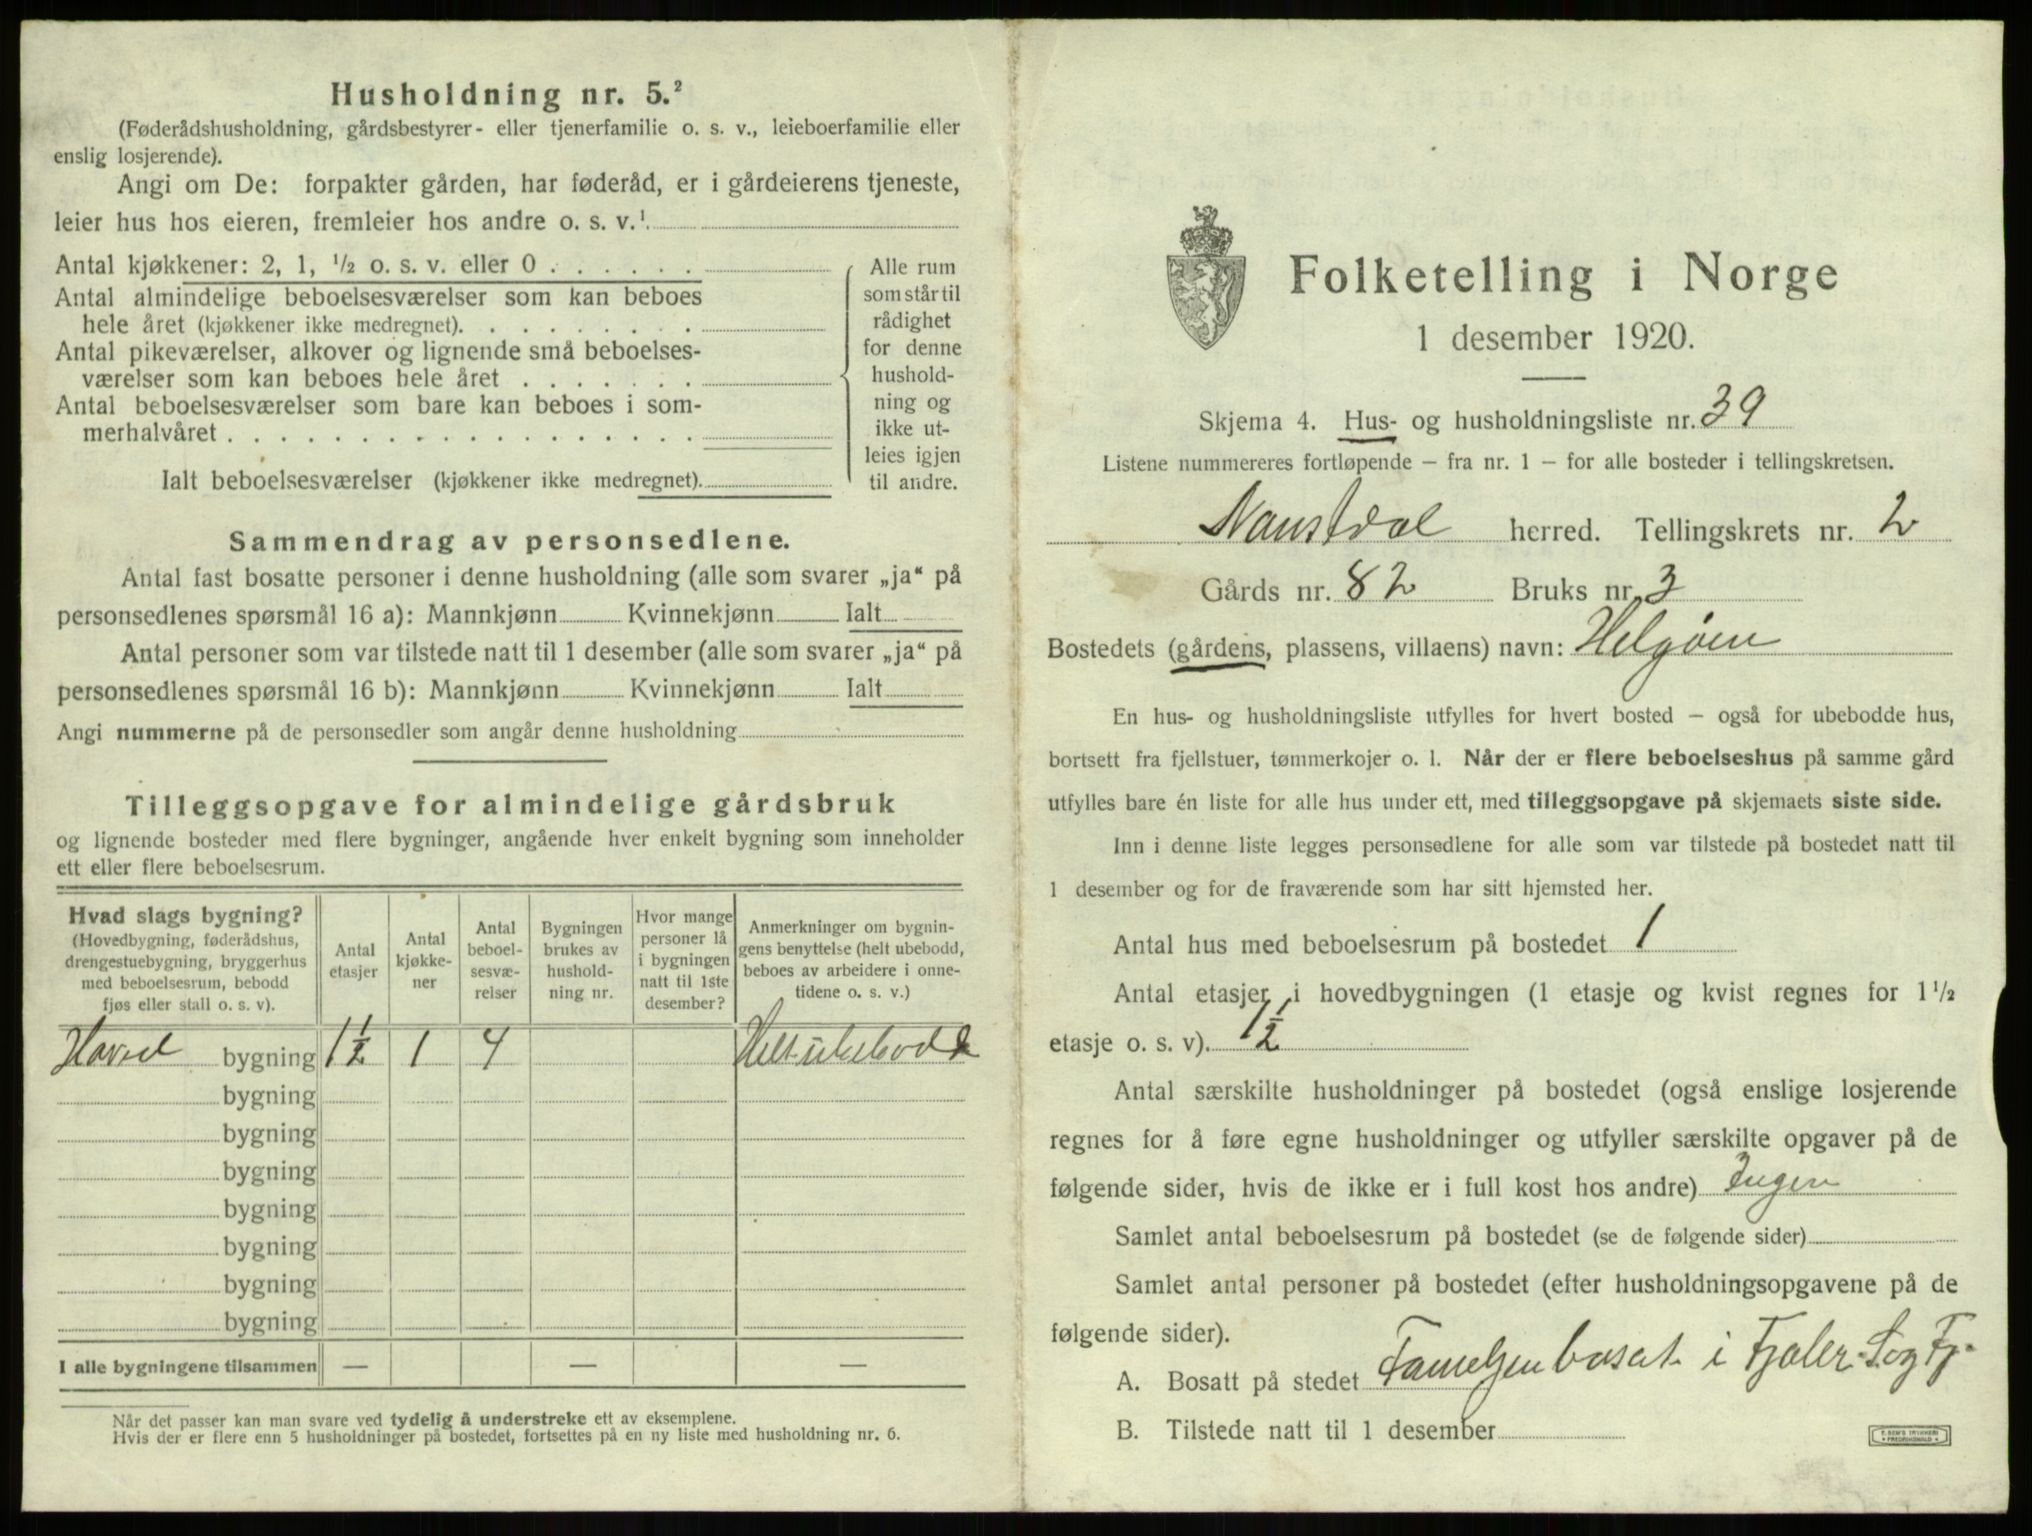 Husholdning nr. 5.²
(Føderådshusholdning, gårdsbestyrer- eller tjenerfamilie o. s. v., leieboerfamilie eller
enslig losjerende).
Angi om De: forpakter gården, har føderåd, er i gårdeierens tjeneste,
leier hus hos eieren, fremleier hos andre o. s. v.¹
Antal kjøkkener: 2, 1, ½ o. s. v. eller 0 . . . . . .
Antal almindelige beboelsesværelser som kan beboes
hele året (kjøkkener ikke medregnet). . . . . . . . .
Antal pikeværelser, alkover og lignende små beboelses-
værelser som kan beboes hele året . . . . . . .
Antal beboelsesværelser som bare kan beboes i som-
merhalvåret . . . . . . . . . . . . . . . . . .
Ialt beboelsesværelser (kjøkkener ikke medregnet).
Alle rum
som står til
rådighet
for denne
hushold-
ning og
ikke ut-
leies igjen
til andre.
Sammendrag av personsedlene.
Antal fast bosatte personer i denne husholdning (alle som svarer „ja“ på
personsedlenes spørsmål 16 a): Mannkjønn Kvinnekjønn Ialt
Antal personer som var tilstede natt til 1 desember (alle som svarer „ja“ på
personsedlenes spørsmål 16 b): Mannkjønn Kvinnekjønn Ialt
Angi nummerne på de personsedler som angår denne husholdning
Tilleggsopgave for almindelige gårdsbruk
og lignende bosteder med flere bygninger, angående hver enkelt bygning som inneholder
ett eller flere beboelsesrum.
Hvad slags bygning?
(Hovedbygning, føderådshus,
drengestuebygning, bryggerhus
med beboelsesrum, bebodd
fjøs eller stall o. s. v).
Antal
etasjer
Antal
kjøkke-
ner
Antal
beboel-
sesvæ-
relser
Bygningen
brukes av
hushold-
ning nr.
Hvor mange
personer lå
i bygningen
natt til 1ste
desember?
Anmerkninger om bygnin-
gens benyttelse (helt ubebodd,
beboes av arbeidere i onne-
tidene o. s. v.)
Hoved bygning 1½ 1 4 Helt ubebodd
bygning
bygning
bygning
bygning
bygning
bygning
bygning
I alle bygningene tilsammen — — —
Når det passer kan man svare ved tydelig å understreke ett av eksemplene.
Hvis der er flere enn 5 husholdninger på bostedet, fortsettes på en ny liste med husholdning nr. 6.
Folketelling i Norge
1 desember 1920.
Skjema 4. Hus- og husholdningsliste nr. 39
Listene nummereres fortløpende – fra nr. 1 – for alle bosteder i tellingskretsen.
Naustdal herred. Tellingskrets nr. 2
Gårds nr. 82 Bruks nr. 3
Bostedets (gårdens, plassens, villaens) navn: Helgøen
En hus- og husholdningsliste utfylles for hvert bosted – også for ubebodde hus,
bortsett fra fjellstuer, tømmerkojer o. l. Når der er flere beboelseshus på samme gård
utfylles bare én liste for alle hus under ett, med tilleggsopgave på skjemaets siste side.
Inn i denne liste legges personsedlene for alle som var tilstede på bostedet natt til
1 desember og for de fraværende som har sitt hjemsted her.
Antal hus med beboelsesrum på bostedet 1
Antal etasjer i hovedbygningen (1 etasje og kvist regnes for 1½
etasje o. s. v). 1½
Antal særskilte husholdninger på bostedet (også enslige losjerende
regnes for å føre egne husholdninger og utfyller særskilte opgaver på de
følgende sider, hvis de ikke er i full kost hos andre) Ingen
Samlet antal beboelsesrum på bostedet (se de følgende sider)
Samlet antal personer på bostedet (efter husholdningsopgavene på de
følgende sider).
A. Bosatt på stedet Familjen bosat i Fjaler Sog Fj.
B. Tilstede natt til 1 desember